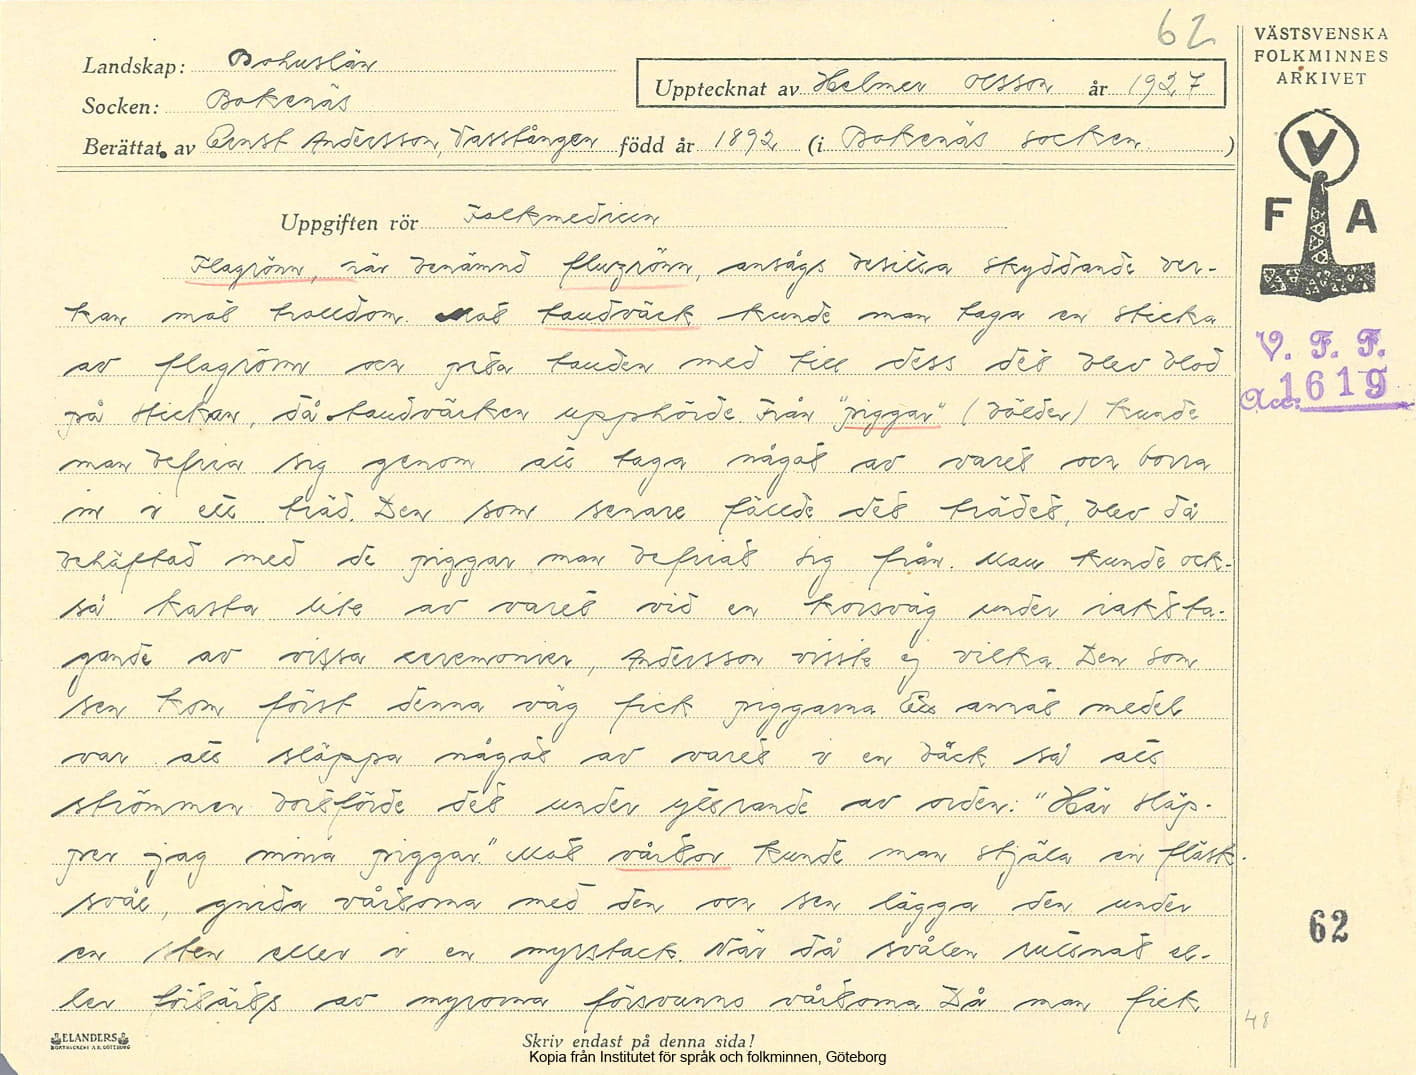 62
VÄSTSVENSKA
FOLKMINNES
ARKIVET
Landskap: Bohuslän
Upptecknat av Helmer Olsson år 1927
Socken: Bokenäs
Berättat av Ernst Andersson, Vasstången född år 1892 (i Bokenäs socken.)
V
F A
Uppgiften rör Folkmedicin
Flagrönn, här benämnd flugrönn, ansågs besitta skyddande ver-
kan mot trolldom. Mot tandvärk kunde man taga en sticka
av flagrönn och peta tanden med till dess det blev blod
på stickan, då tandvärken upphörde. Från "piggar" (bölder) kunde
man befria sig genom att taga något av varet och borra
in i ett träd. Den som senare fällde det trädet, blev då
behäftad med de piggar man befriat sig från. Man kunde ock-
så kasta lite av varet vid en korsväg under iaktta-
gande av vissa ceremonier, Andersson visste ej vilka. Den som
sen kom först denna väg fick piggarna. Ett annat medel
var att släppa något av varet i en bäck så att
strömmen bortförde det under yttrande av orden: "Här släp-
per jag mina piggar." Mot vårtor kunde man stjäla en fläsk-
svål, gnida vårtorna med den och sen lägga den under
en sten eller i en myrstack. När då svålen ruttnat el-
ler förtärts av myrorna försvunno vårtorna. Då man fick
V. F. F.
Acc: 1619
62
48
ELANDERS
BOKTRYCKERI A.B. GÖTEBORG
Skriv endast på denna sida!
Kopia från Institutet för språk och folkminnen, Göteborg